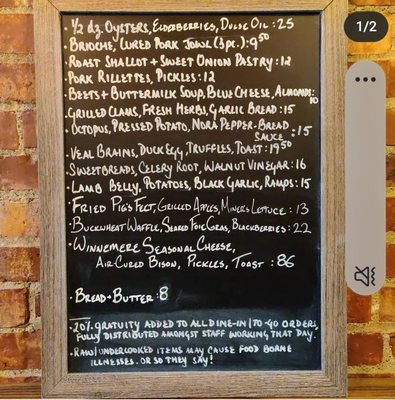 1/2
• ½ dz. OYSTERS, ELDERBERRIES, DULSE OIL : 25
• BRIOCHE, CURED PORK JOWL (3pc.) : 9⁵⁰
ROAST SHALLOT + SWEET ONION PASTRY : 12
PORK RILLETTES, PICKLES : 12
BEETS + BUTTERMILK SOUP, BLUE CHEESE, ALMONDS :
10
GRILLED CLAMS, FRESH HERBS, GARLIC BREAD : 15
OCTOPUS, PRESSED POTATO, NORA PEPPER-BREAD
SAUCE : 15
• VEAL BRAINS, DUCK EGG, TRUFFLES, TOAST : 19⁵⁰
SWEETBREADS, CELERY ROOT, WALNUT VINEGAR : 16
• LAMB BELLY, POTATOES, BLACK GARLIC, RAMPS : 15
• FRIED PIG'S FEET, GRILLED APPLES, MINER'S LETTUCE : 13
BUCKWHEAT WAFFLE, SEARED FOIE GRAS, BLACKBERRIES : 22
• WINNEMERE SEASONAL CHEESE,
AIR-CURED BISON, PICKLES, TOAST : 86
• BREAD + BUTTER : 8
• 20% GRATUITY ADDED TO ALL DINE-IN / TO-GO ORDERS,
FULLY DISTRIBUTED AMONGST STAFF WORKING THAT DAY.
• RAW/UNDERCOOKED ITEMS MAY CAUSE FOOD BORNE
ILLNESSES. OR SO THEY SAY!